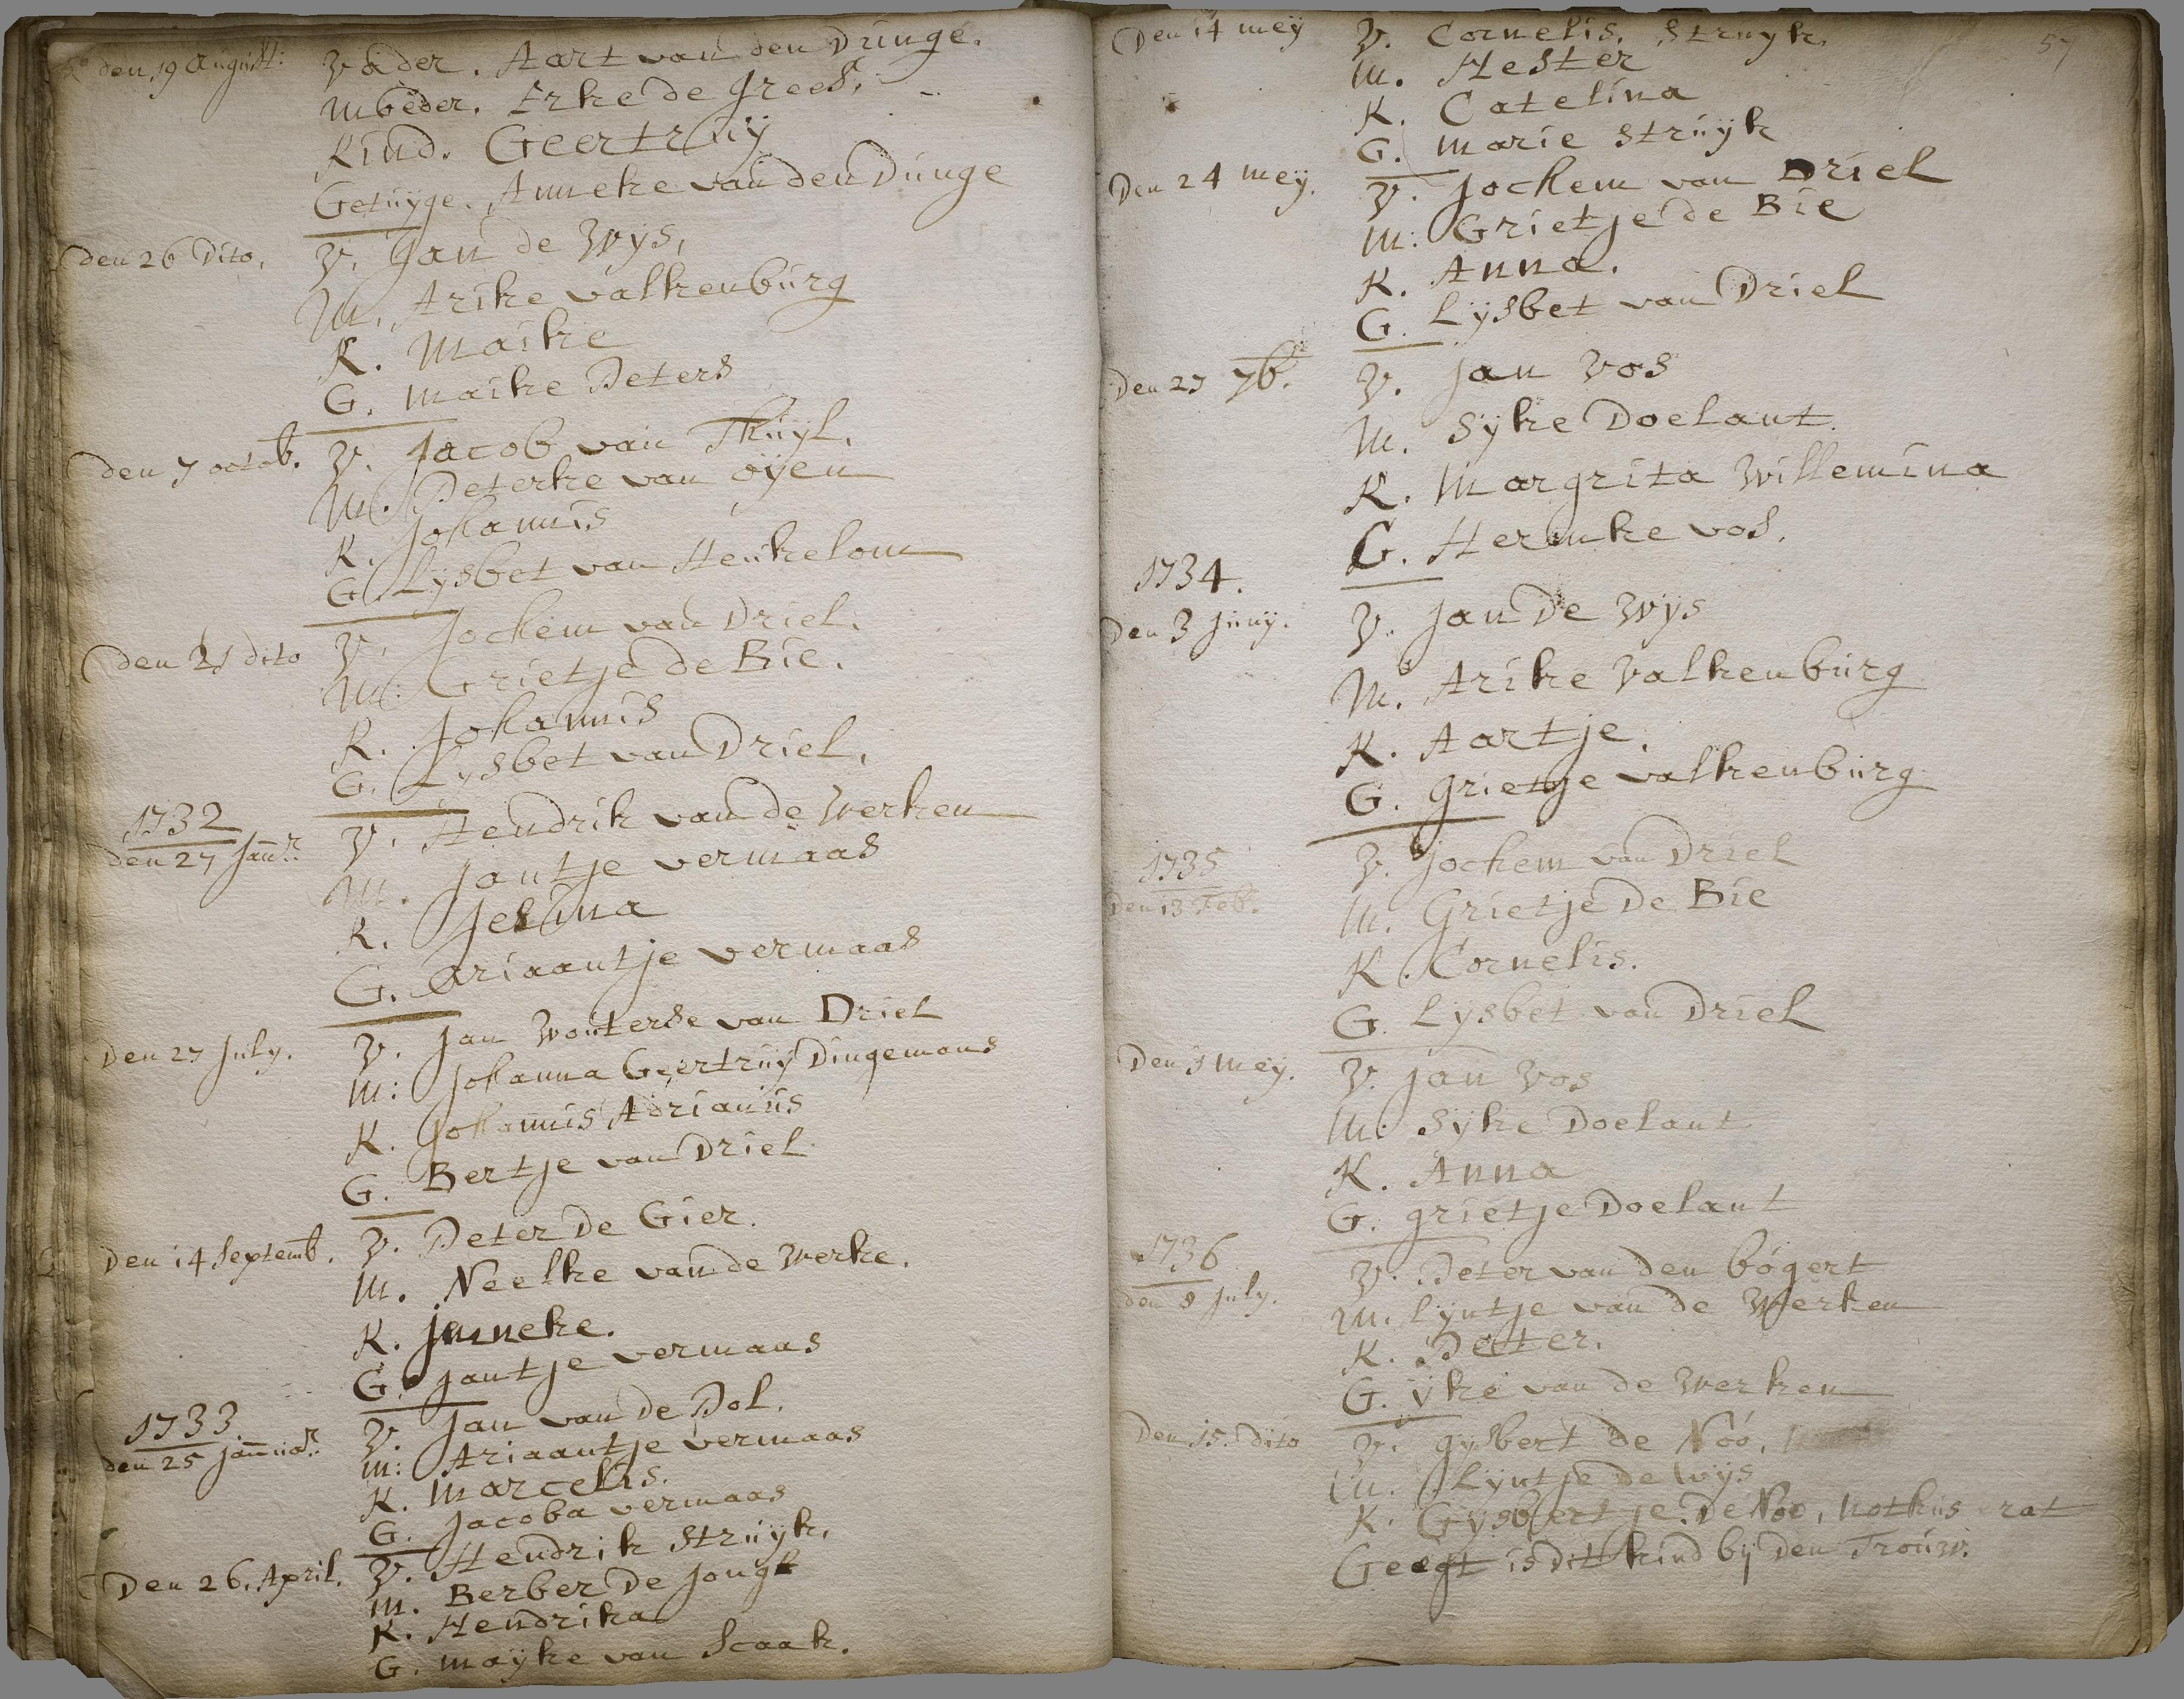 A° den 19 Augúst: Vader. Aart van den Dúnge.
Moeder. Erke de Greef.
Kind. Geertrúÿ
Getúÿge. Anneke van den Dúnge
den 26 Dito. V. Jan de Wÿs,
M. Arike valkenbúrg
K. Maike
G. Maike Peters
den 7 octob. V. Jacob van Thúÿl.
M. Peterke van oÿen
K. Johannis
G. Lÿsbet van Heúkelom
den 21 dito V. Jochem van Driel.
M: Grietje de Bie.
K. Johannis
G. Lÿsbet van Driel.
1732
den 27 Janr. V. Hendrik van de Werken
M. Jantje vermaas
K. Jesina
G. Ariaantje vermaas
Den 27 July. V. Jan Wouterse van Driel
M: Johanna Geertrúÿ Dingemans
K. Johannis Adrianús
G. Bertje van Driel
Den 14 Septemb. V. Peter De Gier.
M. Neelke van de Werke.
K. Janneke.
G. Jantje vermaas
1733.
den 25 Janúar. V. Jan van de Pol.
M: Ariaantje vermaas
K. Marcelis.
G. Jacoba vermaas
Den 26. April. V. Hendrik Strúÿk.
M. Berber De Jongh
K. Hendrika
G. Maÿke van Scaak.
57
Den 14 meÿ V. Cornelis. Strúyk.
M. Hester
K. Catelina
G. Marie Strúÿk
Den 24 meÿ. V. Jochem van Driel
M: Grietje de Bie
K. Anna.
G. Lÿsbet van Driel
Den 27 7b. V. Jan Vos
M. Sÿke Doelant.
K. Margrita Willemina
G. Hermke vos.
1734.
Den 3 Júnÿ. V. Jan De Wÿs
M. Arike Valkenbúrg
K. Aartje.
G. Grietje valkenbúrg
1735
Den 13 Feb. V. Jochem van Driel
M. Grietje De Bie
K. Cornelis.
G. Lÿsbet van Driel
Den 1 Meÿ. V. Jan Vos
M: Sÿke Doelant
K. Anna
G. grietje Doelant
1736
den 8 July. V. Peter van den bógert
M. Lÿntje van de Werken
K. Peter.
G. ÿke van de Werken
Den 15. Dito V. gÿsbert de Nóó.
M. Lÿntje de Wÿs
K. Gÿsbertje. De Nóó, nothús rat
Geegt is Dit kind bÿ Den Troúw.